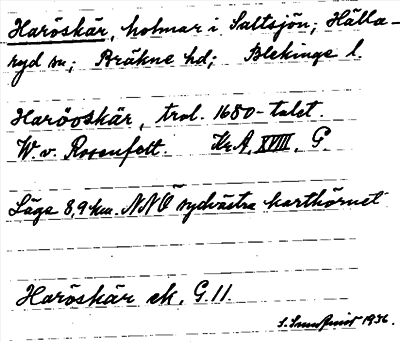 Haröskär, holmar i Saltsjön; Hälla-
ryd sn; Bräkne hd; Blekinge l.
Haröoskär, trol. 1680-talet.
W. v. Rosenfelt. Kr.A. XVIII. G.
Läge 8,9 km. NNÖ sydvästra karthörnet
Haröskär ek. G.11.
S. Sundquist 1936.